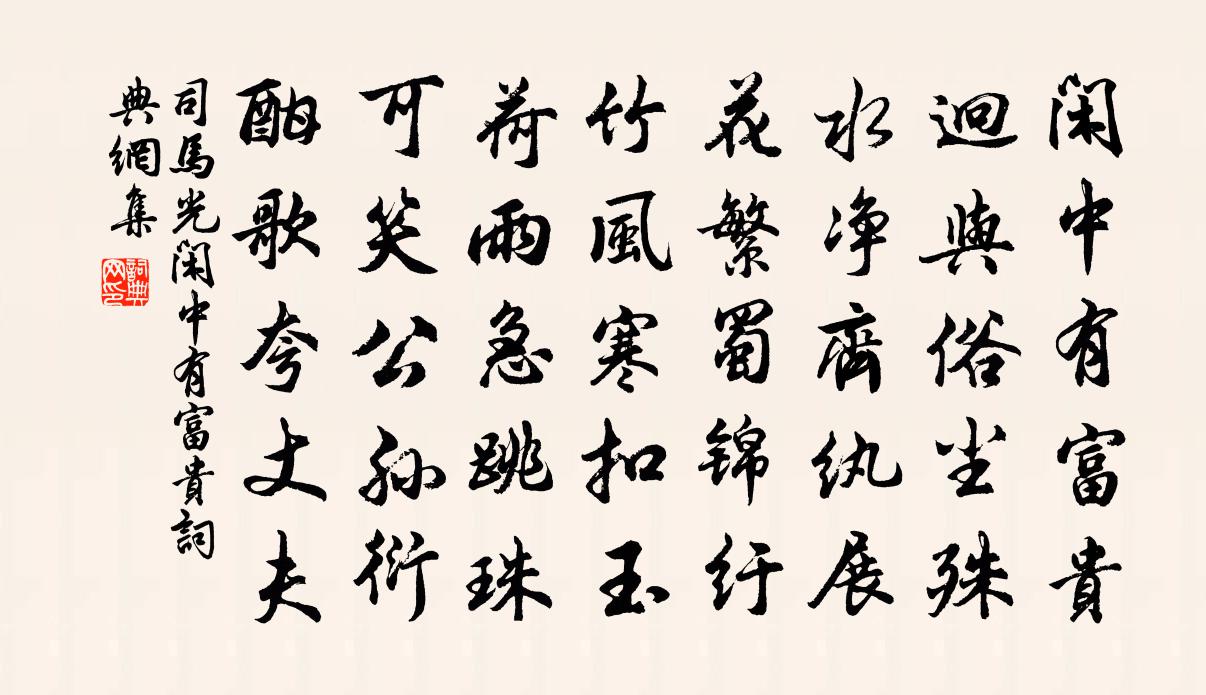 闲中有富貴
迥與俗尘殊
水净齊纨展
花繁蜀锦纡
竹風寒扣玉
荷雨急跳珠
可笑公孙衍
酣歌夸丈夫
司馬光闲中有富貴詞
典網集
詞典
网印